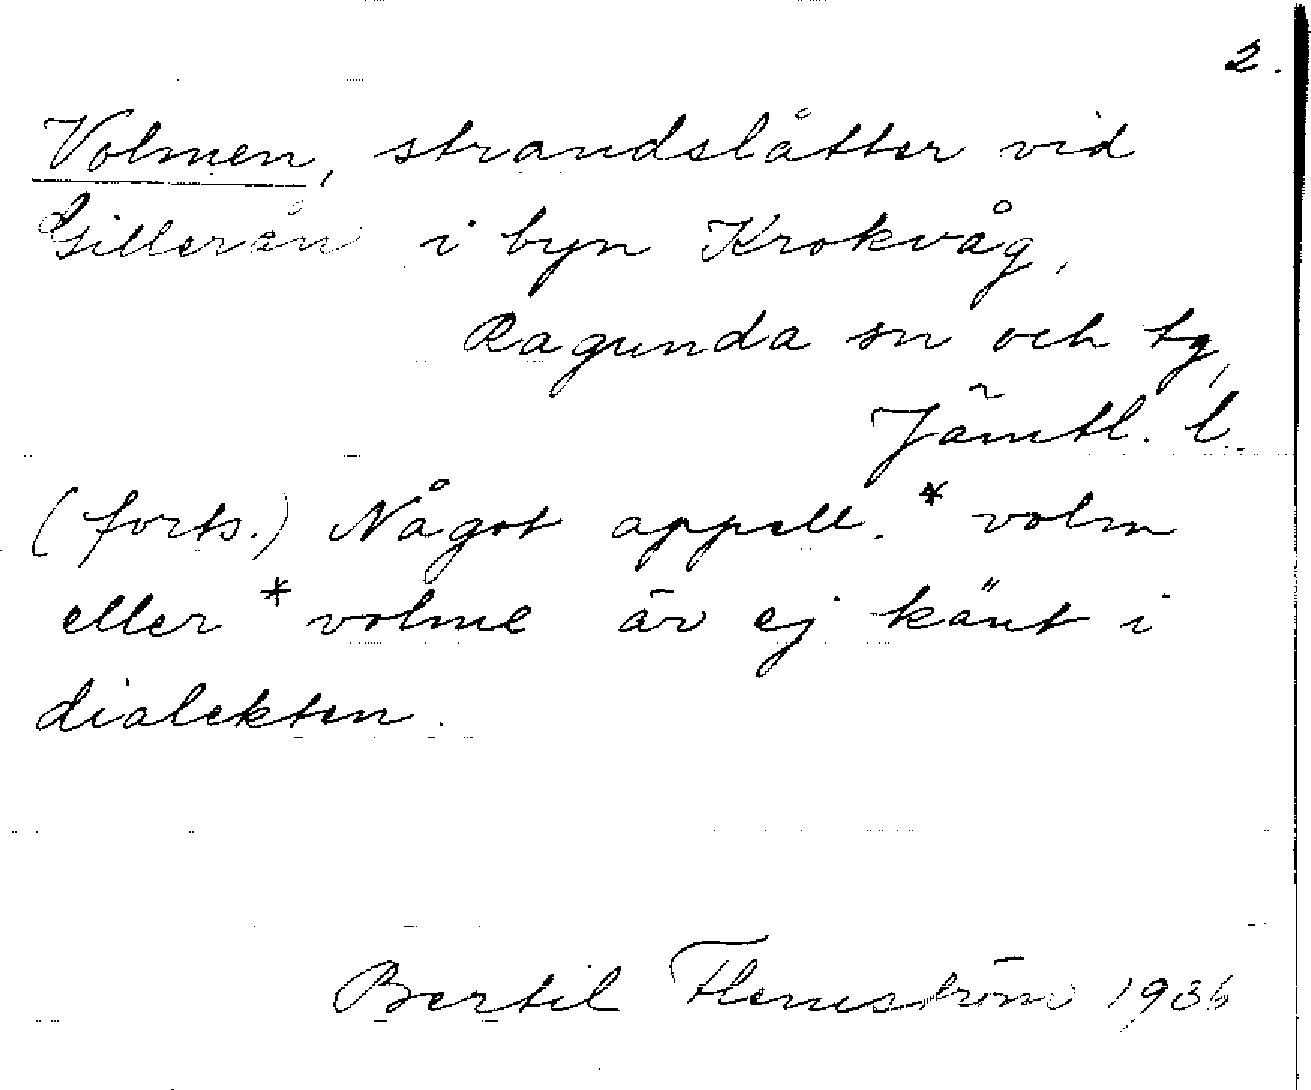 2.
Volmen, strandslåtter vid
Gillerån i byn Krokvåg,
Ragunda sn och tg,
Jämtl. l.
(forts.) Något appell. *volm
eller *volme är ej känt i
dialekten.
Bertil Flemström 1936